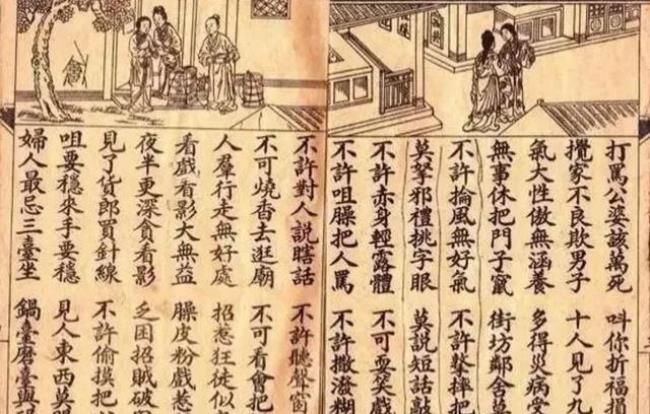 打罵公婆該萬死 呌你折福損
攪家不良欺男子 十人見了九
氣大性傲無涵養 多得災病受
無事休把門子竄 街坊鄰舍莫
不許掄風無好氣 不許摔把
莫拏邪禮挑字眼 莫說短話敲
不可赤身輕露體 不可耍笑戲
不許咀臊把人罵 不許撒潑糊
不許對人說瞎話 不許聽聲窗
不可燒香去逛廟 不可看會把
人羣行走無好處 招惹狂徒似
看戲看影大無益 臊皮粉戲惹
夜半更深貪看影 乏困招賊破
見了貨郎買針線 不許偷摸把
咀要穩來手要穩 見人東西莫
婦人最忌三臺坐 鍋臺磨臺與